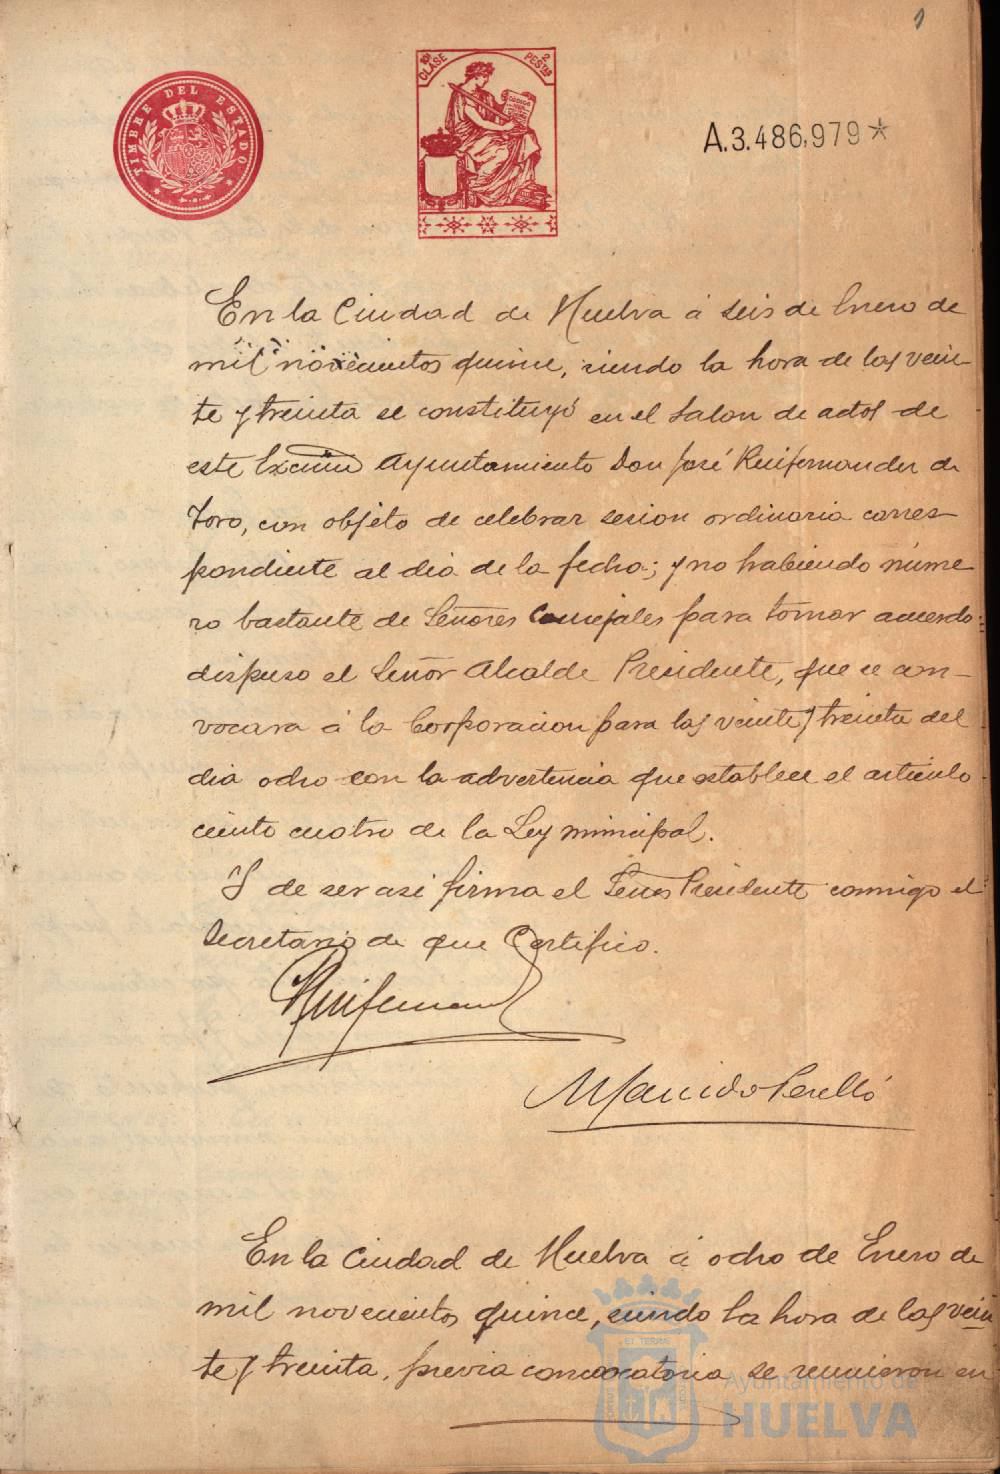 1
TIMBRE DEL ESTADO
10ª CLASE
2 PESTAS
A.3.486,979*
En la Ciudad de Huelva á seis de Enero de
mil novecientos quince, siendo la hora de las vein-
te y treinta se constituyó en el Salon de actos de
este Excmo Ayuntamiento Don José Ruifernandez de
Toro, con objeto de celebrar sesion ordinaria corres-
pondiente al dia de la fecha; y no habiendo núme
ro bastante de Señores Concejales para tomar acuerdo
dispuso el Señor Alcalde Presidente, que se con-
vocara á la Corporacion para las veinte y treinta del
dia ocho con la advertencia que establece el articulo
ciento cuatro de la Ley municipal.
Y de ser asi firma el Señor Presidente conmigo el
Secretario de que Certifico.
Ruifernand
Perelló
En la Ciudad de Huelva á ocho de Enero de
mil novecientos quince, siendo la hora de las vein
te y treinta, previa convocatoria se reunieron en
Ayuntamiento de
HUELVA